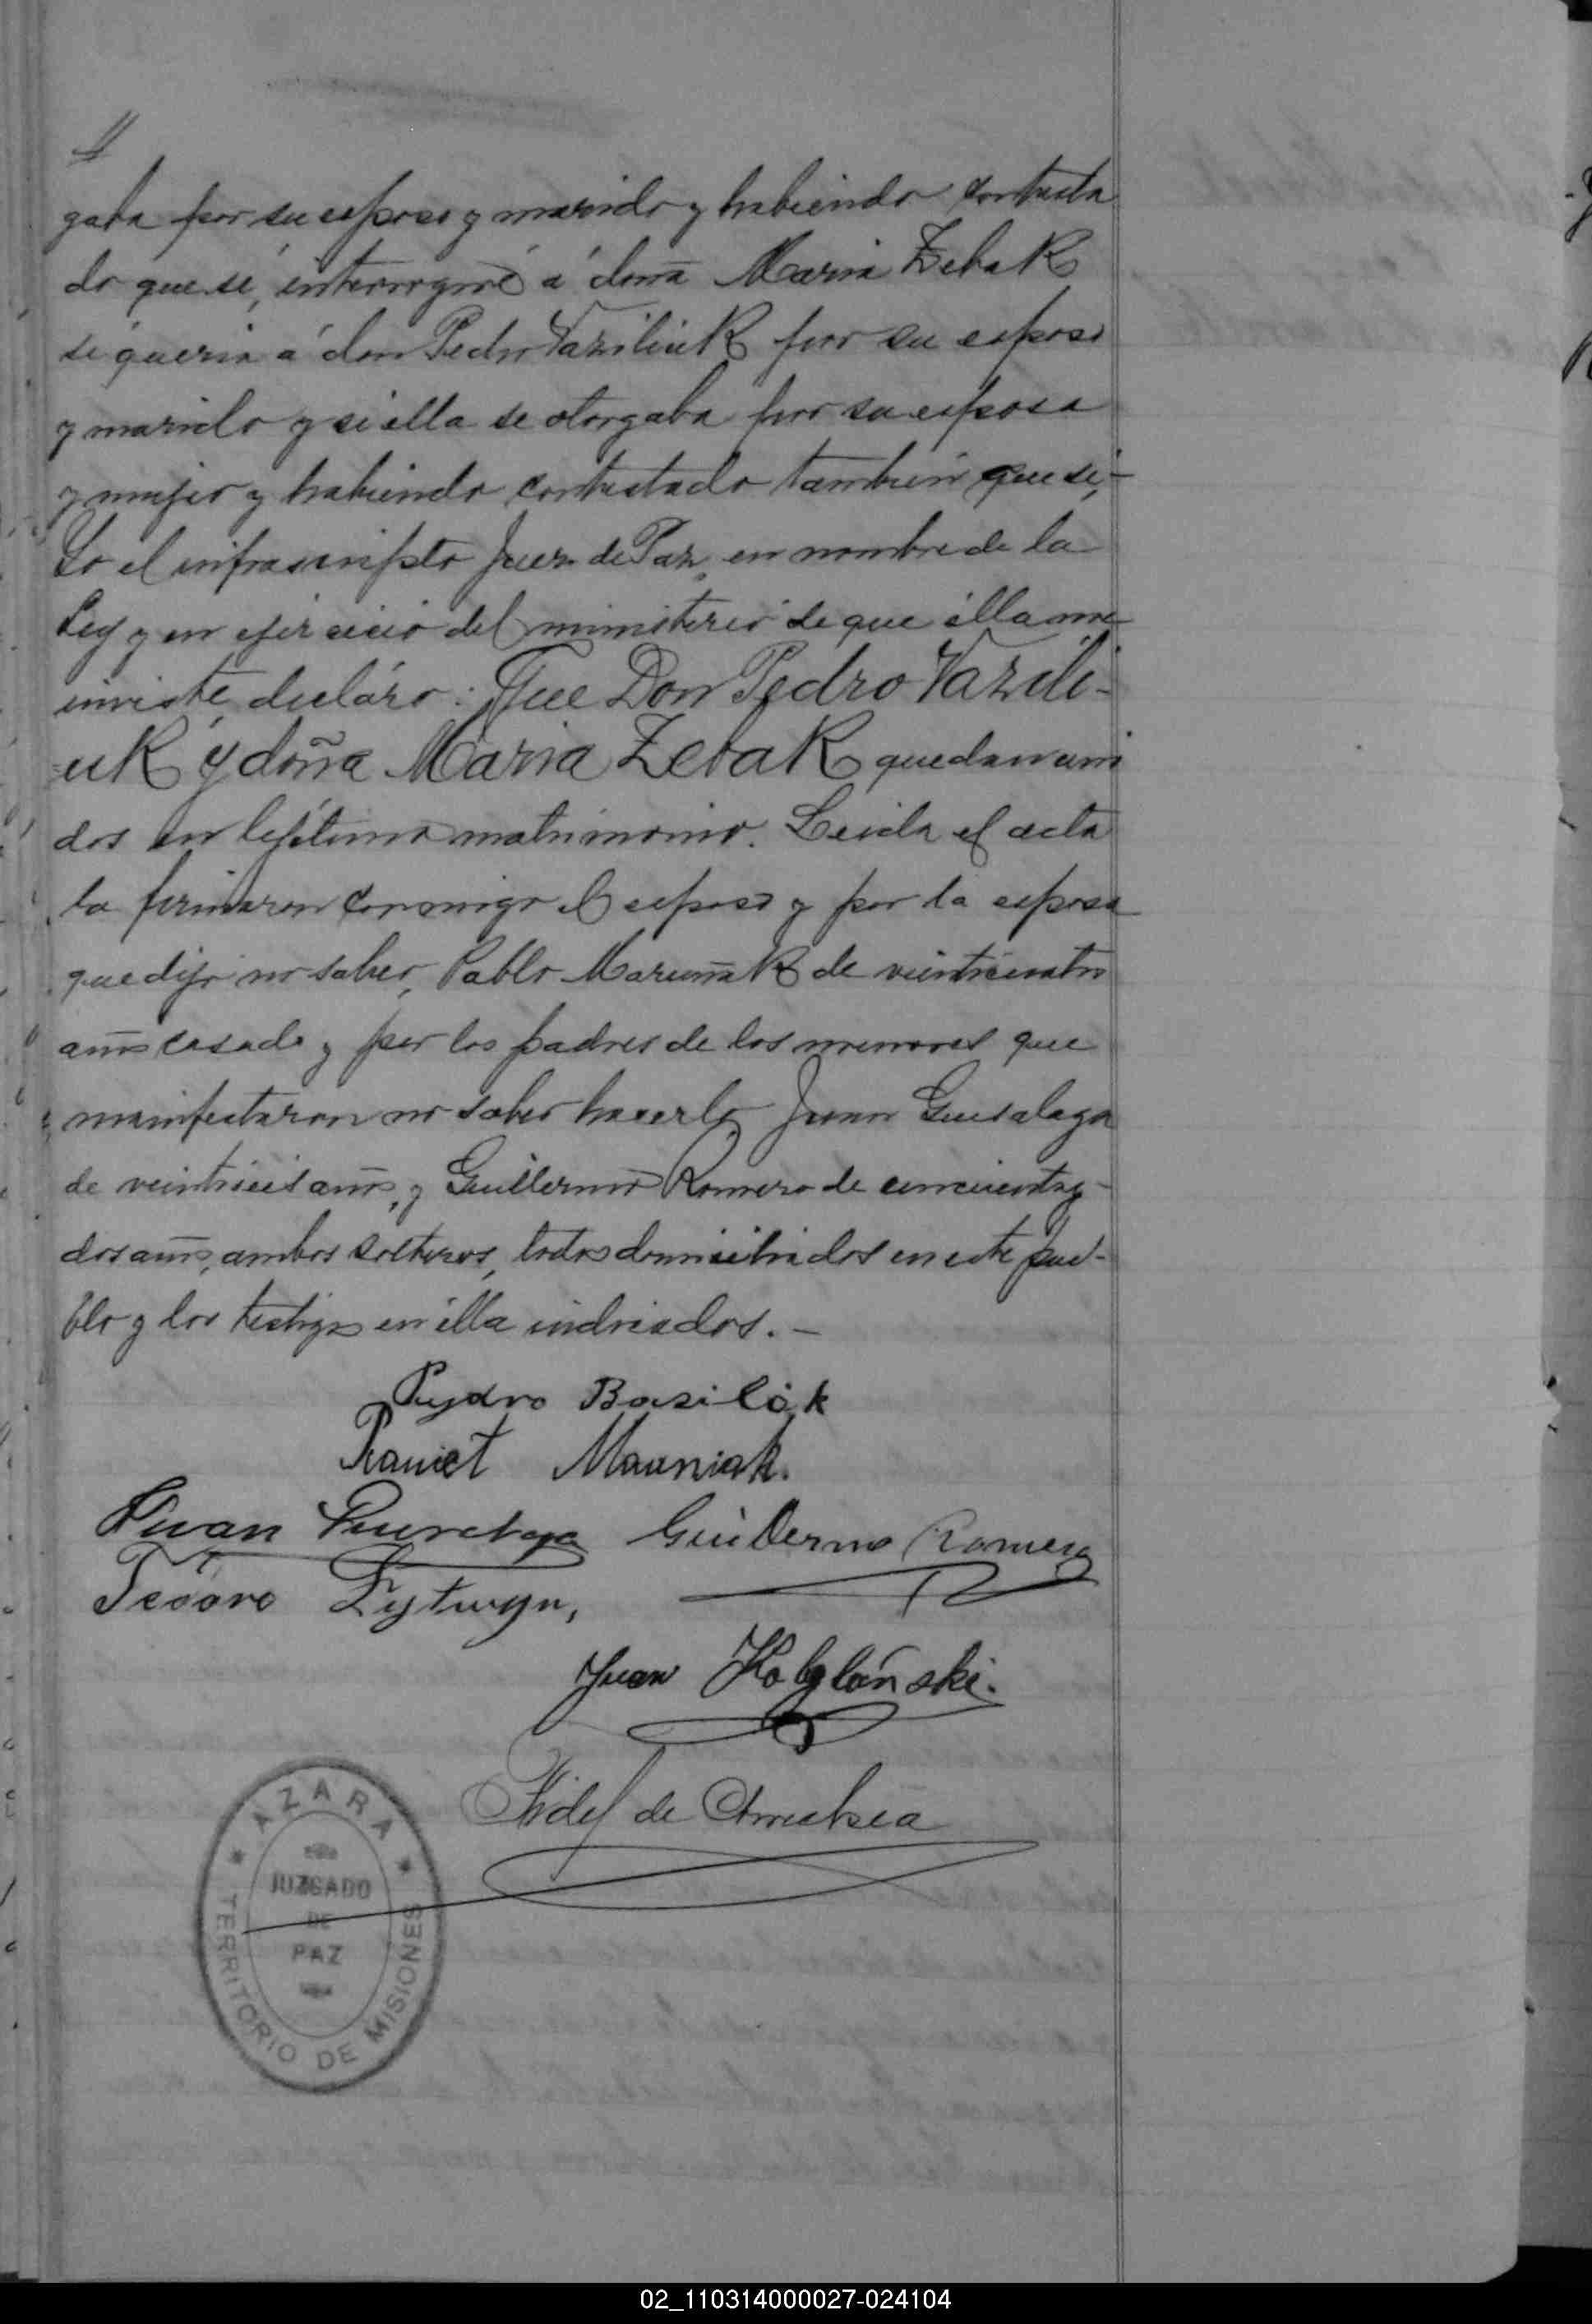 gaba por su esposo y marido y habiendo contesta
do que si, interrogué á doña Maria Zebak
si queria á don Pedro Vaziliuk por su esposo
y marido y si ella se otorgaba por su esposa
y mujer y habiendo contestado tambien que si,-
Yo el infrascripto Juez de Paz, en nombre de la
Ley y en ejercicio del ministerio de que ella me
inviste, declaro: Que Don Pedro Vazili-
uk y doña Maria Zebak quedan uni
dos en lejítimo matrimonio. Leida el acta
la firmaron conmigo el esposo y por la esposa
que dijo no saber, Pablo Maruñak de veinticuatro
años casado y por los padres de los menores que
manifestaron no saber hacerlo, Juan Guesalaga
de veintiseis años, y Guillermo Romero de cincuenta y
dos años, ambos solteros, todos domiciliados en este pue-
blo y los testigos en ella indicados.-
Pydro Basilok
Mauniak.
Juan Guillermo Romero
Teodoro Lytwyn,
Juan Kobylański.
Fidel de
AZARA
JUZGADO
DE
PAZ
TERRITORIO DE MISIONES
02_110314000027-024104